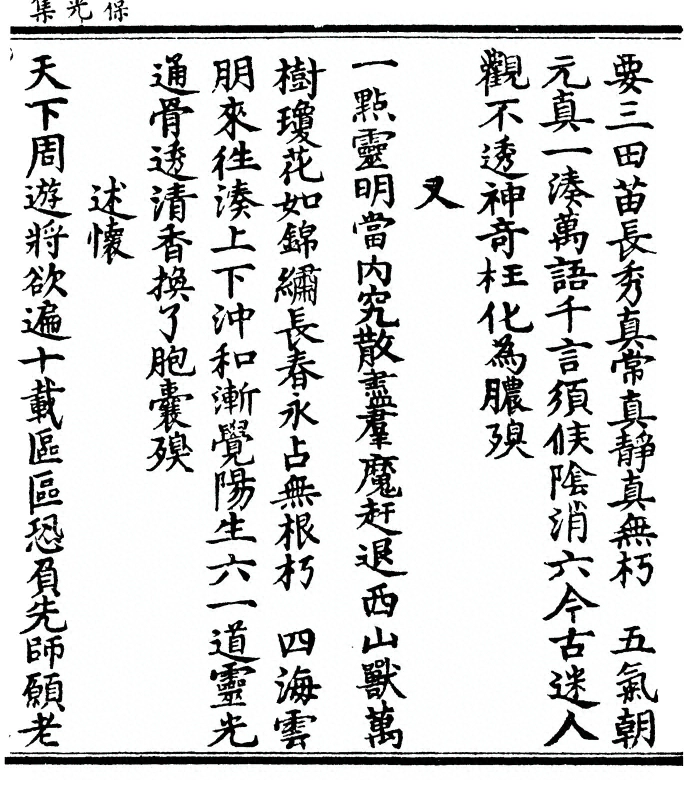 保光集
要三田苗長秀真常真靜真無朽　五氣朝
元真一湊萬語千言須候陰消六今古迷人
觀不透神奇枉化為膿殠
又
一點靈明當內究散盡羣魔赶退西山獸萬
樹瓊花如錦繡長春永占無根朽　四海雲
朋來徃湊上下沖和漸覺陽生六一道靈光
通骨透清香換了胞囊殠
述懷
天下周遊將欲遍十載區區恐負先師願老